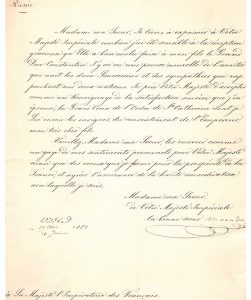 Russie
Madame ma Soeur, Je tiens à exprimer à Votre
Majesté Impériale combien j'ai été sensible à la réception
gracieuse qu'Elle a bien voulu faire à mon fils le Grand
Duc Constantin. J'y ai vu une preuve nouvelle de l'amitié
qui unit les deux Souverains et des sympathies qui rap-
prochent nos deux nations. Je prie Votre Majesté d'accepter
comme un témoignage de la satisfaction sincère que j'en
éprouve, la Grand Croix de l'Ordre de Ste Catherine dont j'
ai les insignes du consentement de l'Empereur
mon très cher fils.
Veuillez, Madame ma Soeur, les recevoir comme un
gage de mes sentiments pour Votre Majesté
ainsi que des voeux que je forme pour la prospérité de la
France, et agréer l'assurance de la haute considération
avec laquelle je suis,
Madame ma Soeur,
de Votre Majesté Impériale
la bonne soeur
à Sa Majesté l'Impératrice des Français.